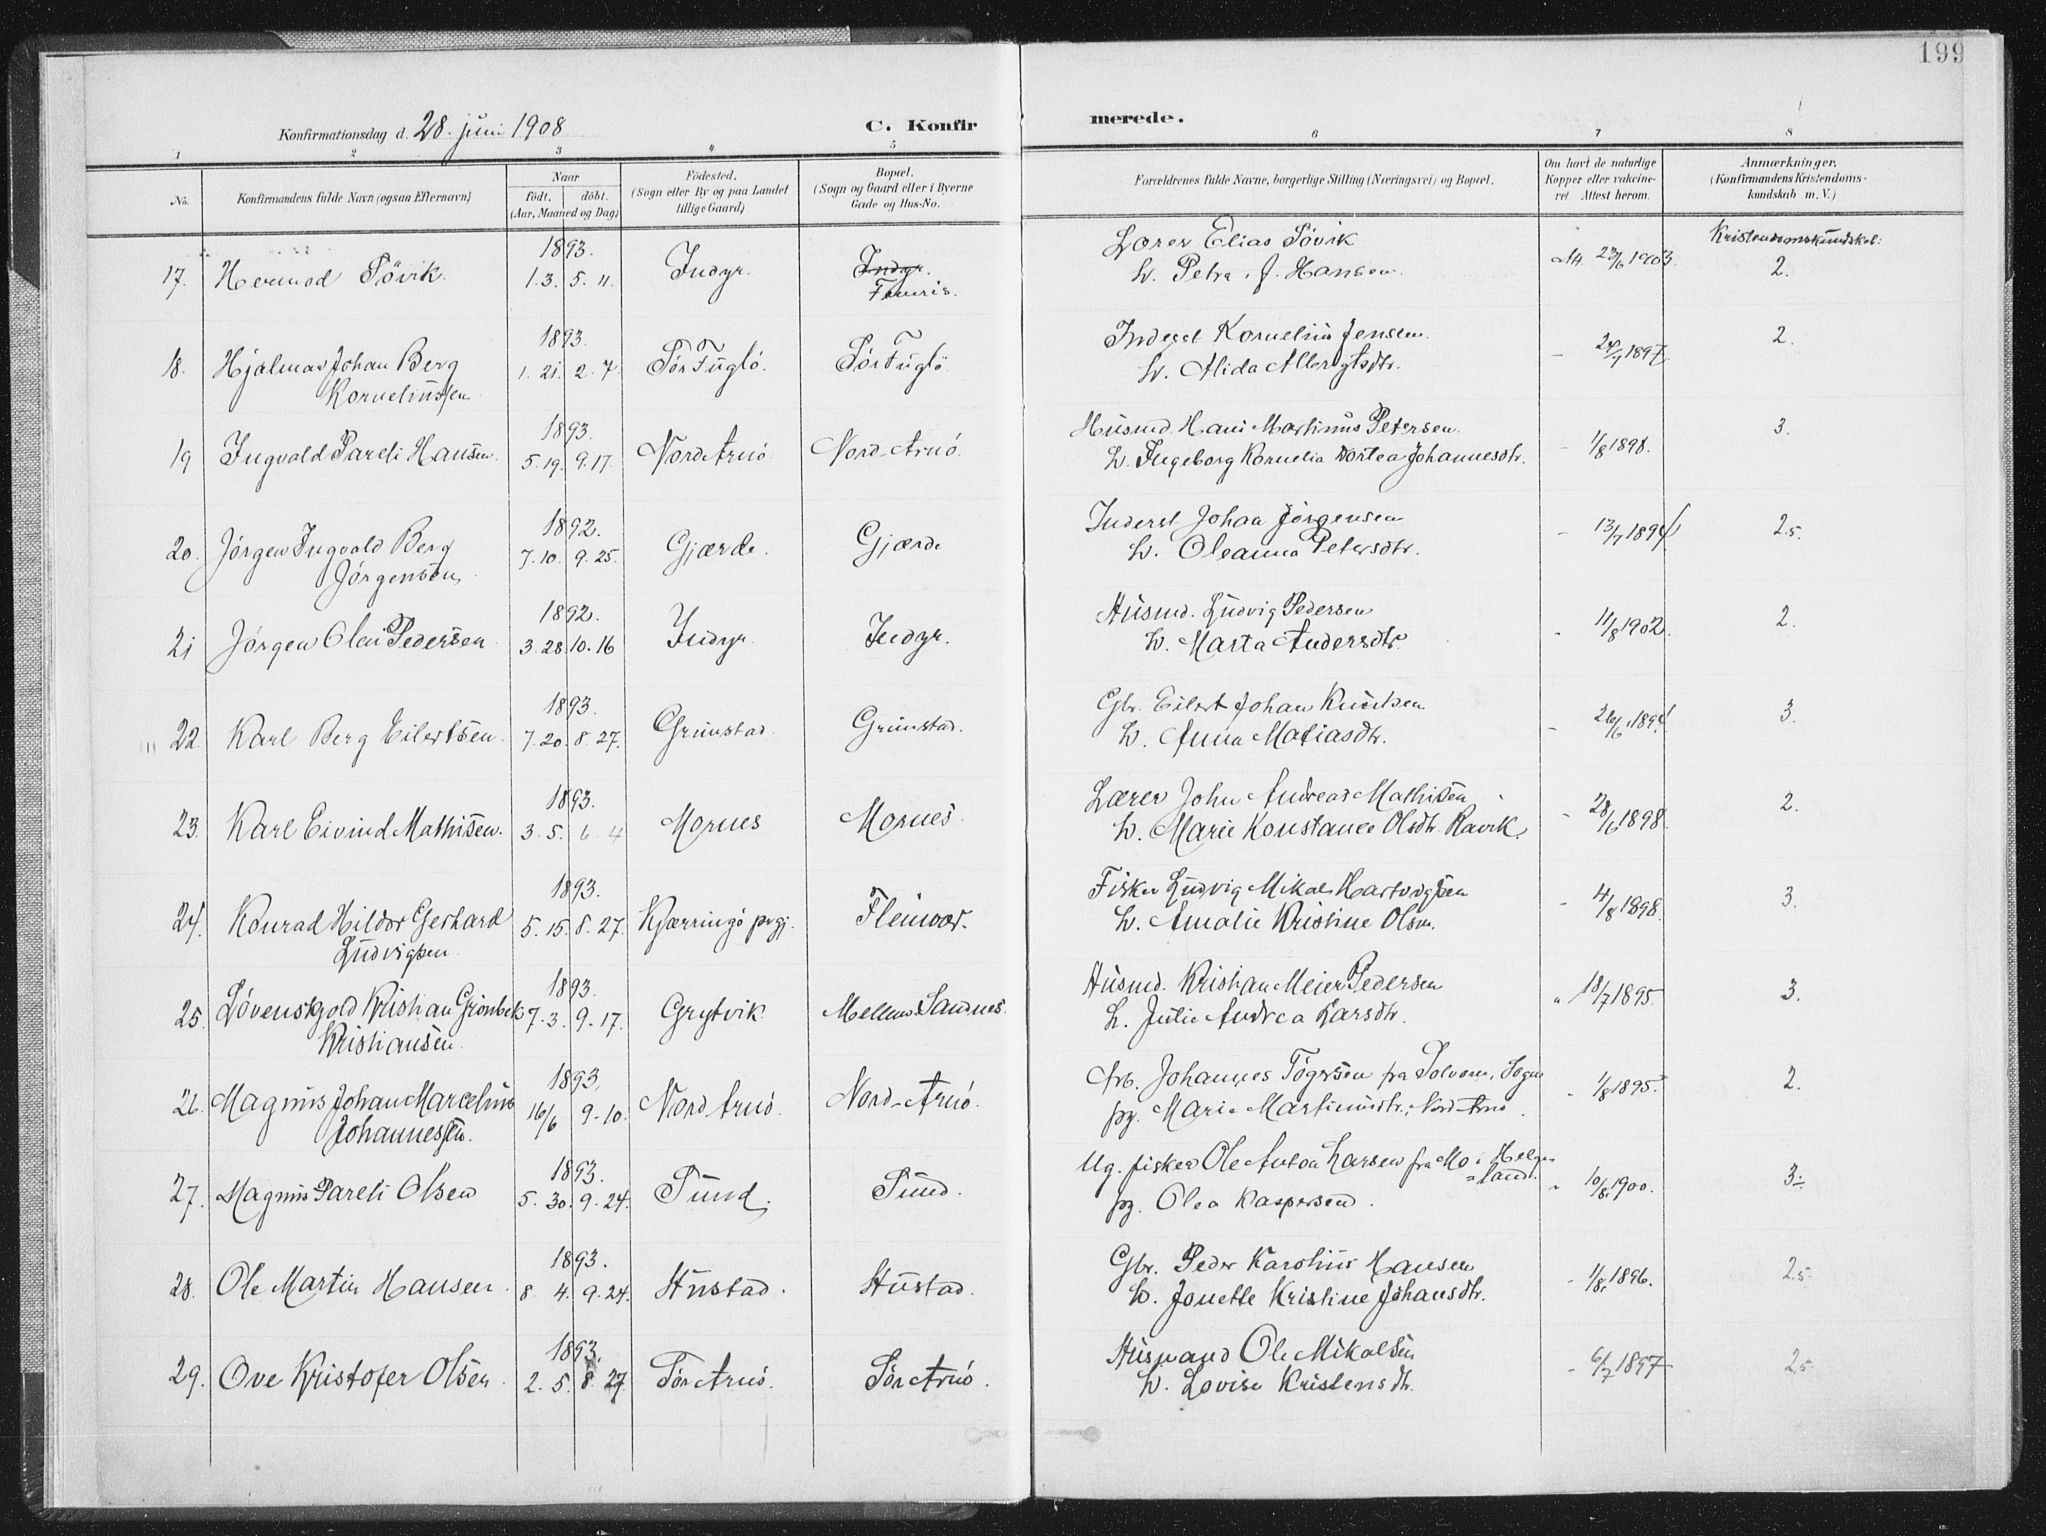 199
Konfirmationsdag d. 28. juni 1908
C. Konfir
merede.
1 2 3 4 5 6 7 8
No.
Konfirmandens fulde Navn (ogsaa Efternavn)
Naar
født. døbt.
(Aar, Maaned og Dag)
Fødested.
(Sogn eller By og paa Landet
tillige Gaard)
Bopæl.
(Sogn og Gaard eller i Byerne
Gade og Hus-No.
Forældrenes fulde Navne, borgerlige Stilling (Næringsvei) og Bopæl.
Om havt de naturlige
Kopper eller vakcine-
ret Attest herom.
Anmærkninger.
(Konfirmandens Kristendoms-
kundskab m. V.)
1893. Lærer Elias Søvik Kristendomskundskab:
17. Hermod Søvik. 1.3. 5.11. Indyr. Indyr. 23/6 1903. 2.
Fauris. h. Petra J. Hansen.
1893. Inderst Kornelius Jensen.
18. Hjalmar Johan Berg 1.21. 2.7. Sør Fuglø. Sør Fuglø - 1897. 2.
Korneliussen h. Alida Albregtsdtr.
1893. Husmd. Hans Martinus Petersen.
19 Ingvald Pareli Hansen. 5.19. 9.17. Nord Arnø Nord-Arnø. - 1/8 1898. 3.
h. Ingeborg Kornelia Dortea Johannesdtr.
1892. Inderst Johan Jörgensen
20. Jørgen Ingvald Berg 7.10. 9.25. Gjærde. Gjærde - 13/7 1894 2.5.
Jørgensen h. Oleanna Petersdtr.
1892. Husmd. Ludvig Pedersen
21 Jørgen Olai Pedersen 3.28. 10.16 Indyr. Indyr. 11/8 1902. 2.
h. Marta Andersdtr.
1893. Gbr. Eilert Johan Knutsen
22. Karl Berg Eilertsen. 7.20. 8.27. Grimstad. Grimstad. - 26/6 1894 3.
h. Anna Matiasdtr.
1893. Lærer John Andreas Mathisen
23. Karl Eivind Mathisen. 3.5. 6.4 Mornes Mornes. - 28/6 1898. 2.
h. Marie Konstance Olsdtr. Ravik.
1893. Fisker Ludvig Mikal Hartvigsen
24. Konrad Hildor Gerhard 5.15. 8.27. Kjærringø prgj. Fleinvær. - 4/8 1898. 3.
Ludvigsen. h. Amalie Kristine Olsen.
1893. Husmd. Kristian Meier Pedersen
25. Løvenskjold Kristian Grønbek 7.3. 9.17. Grytvik Mellem Sandnes. 18/7 1895. 3.
Kristiansen. h. Julie Andrea Larsdtr.
1893. Arb. Johannes Tøgersen fra Solvorn, Sogn
26. Magnus Johan Marcelius 16/6 9-10. Nord Arnø. Nord-Arnø. 1/8 1895. 2.
Johannessen. pg. Marie Martinusdtr., Nord-Arnø.
1893. Ug. fisker Ole Anton Larsen fra Mo i Helge-
land.
27. Magnus Pareli Olsen 5.30. 9.24. Sund. Sund. 10/8 1900. 3.
pg. Olea Kaspersen.
1893. Gbr. Peder Karolius Hansen
28. Ole Martin Hansen. 8 4. 9.24. Hustad. Hustad. - 1/8 1896. 2.5.
h. Jonette Kristine Johansdtr.
1893. Husmand Ole Mikalsen
29. Ove Kristofer Olsen. 2.5. 8.27. Sør Arnø. Sør Arnø. - 6/7 1897 2.5
h. Lovise Kristensdtr.